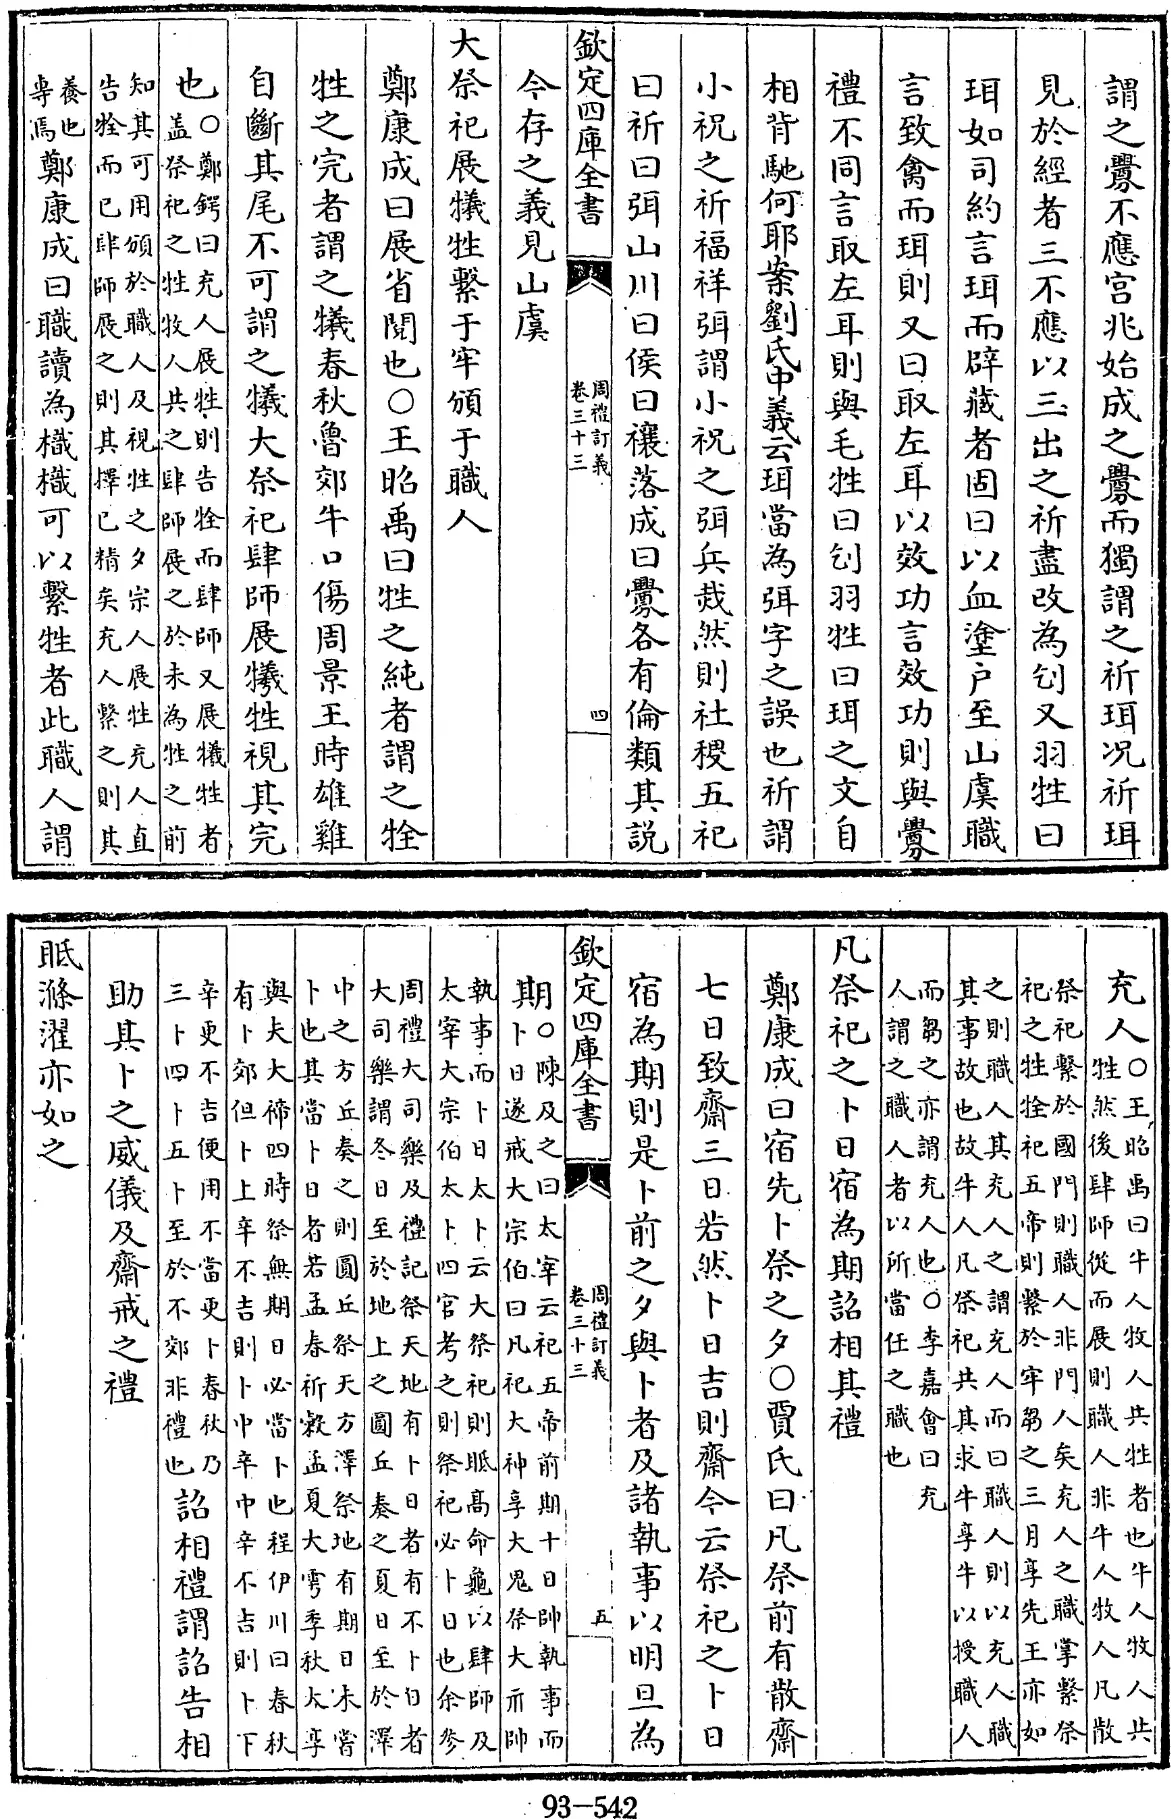 謂之釁不應宫兆始成之釁而獨謂之祈珥况祈珥
見於經者三不應以三出之祈盡改為刉又羽牲曰
珥如司約言珥而辟藏者固曰以血塗户至山虞職
言致禽而珥則又曰取左耳以效功言效功則與釁
禮不同言取左耳則與毛牲曰刉羽牲曰珥之文自
相背馳何耶案劉氏中義云珥當為弭字之誤也祈謂
小祝之祈福祥弭謂小祝之弭兵烖然則社稷五祀
曰祈曰弭山川曰侯曰禳落成曰釁各有倫類其説
欽定四庫全書
周禮訂義
卷三十三
四
今存之義見山虞
大祭祀展犧牲繫于牢頒于職人
鄭康成曰展省閲也○王昭禹曰牲之純者謂之牷
牲之完者謂之犧春秋魯郊牛口傷周景王時雄雞
自斷其尾不可謂之犧大祭祀肆師展犧牲視其完
也○鄭鍔曰充人展牲則告牷而肆師又展犧牲者
盖祭祀之牲牧人共之肆師展之於未為牲之前
知其可用頒於職人及視牲之夕宗人展牲充人直
告牷而已肆師展之則其擇已精矣充人繫之則其
養也
專焉
鄭康成曰職讀為樴樴可以繫牲者此職人謂
充人○王昭禹曰牛人牧人共牲者也牛人牧人共
牲然後肆師從而展則職人非牛人牧人凡散
祭祀繫於國門則職人非門人矣充人之職掌繫祭
祀之牲牷祀五帝則繫於牢芻之三月享先王亦如
之則職人其充人之謂充人而曰職人則以充人職
其事故也故牛人凡祭祀共其求牛享牛以授職人
而芻之亦謂充人也○李嘉會曰充
人謂之職人者以所當任之職也
凡祭祀之卜日宿為期詔相其禮
鄭康成曰宿先卜祭之夕○賈氏曰凡祭前有散齋
七日致齋三日若然卜日吉則齋今云祭祀之卜日
宿為期則是卜前之夕與卜者及諸執事以明旦為
欽定四庫全書
周禮訂義
卷三十三
五
期○陳及之曰太宰云祀五帝前期十日帥執事而
卜日遂戒大宗伯曰凡祀大神享大鬼祭大示帥
執事而卜日太卜云大祭祀則眡髙命龜以肆師及
太宰大宗伯太卜四官考之則祭祀必卜日也余參
周禮大司樂及禮記祭天地有卜日者有不卜日者
大司樂謂冬日至於地上之圜丘奏之夏日至於澤
中之方丘奏之則圓丘祭天方澤祭地有期日未嘗
卜也其當卜日者若孟春祈穀孟夏大雩季秋大享
與夫大禘四時祭無期日必當卜也程伊川曰春秋
有卜郊但卜上辛不吉則卜中辛中辛不吉則卜下
辛更不吉便用不當更卜春秋乃
三卜四卜五卜至於不郊非禮也
詔相禮謂詔告相
助其卜之威儀及齋戒之禮
眡滌濯亦如之
93-542